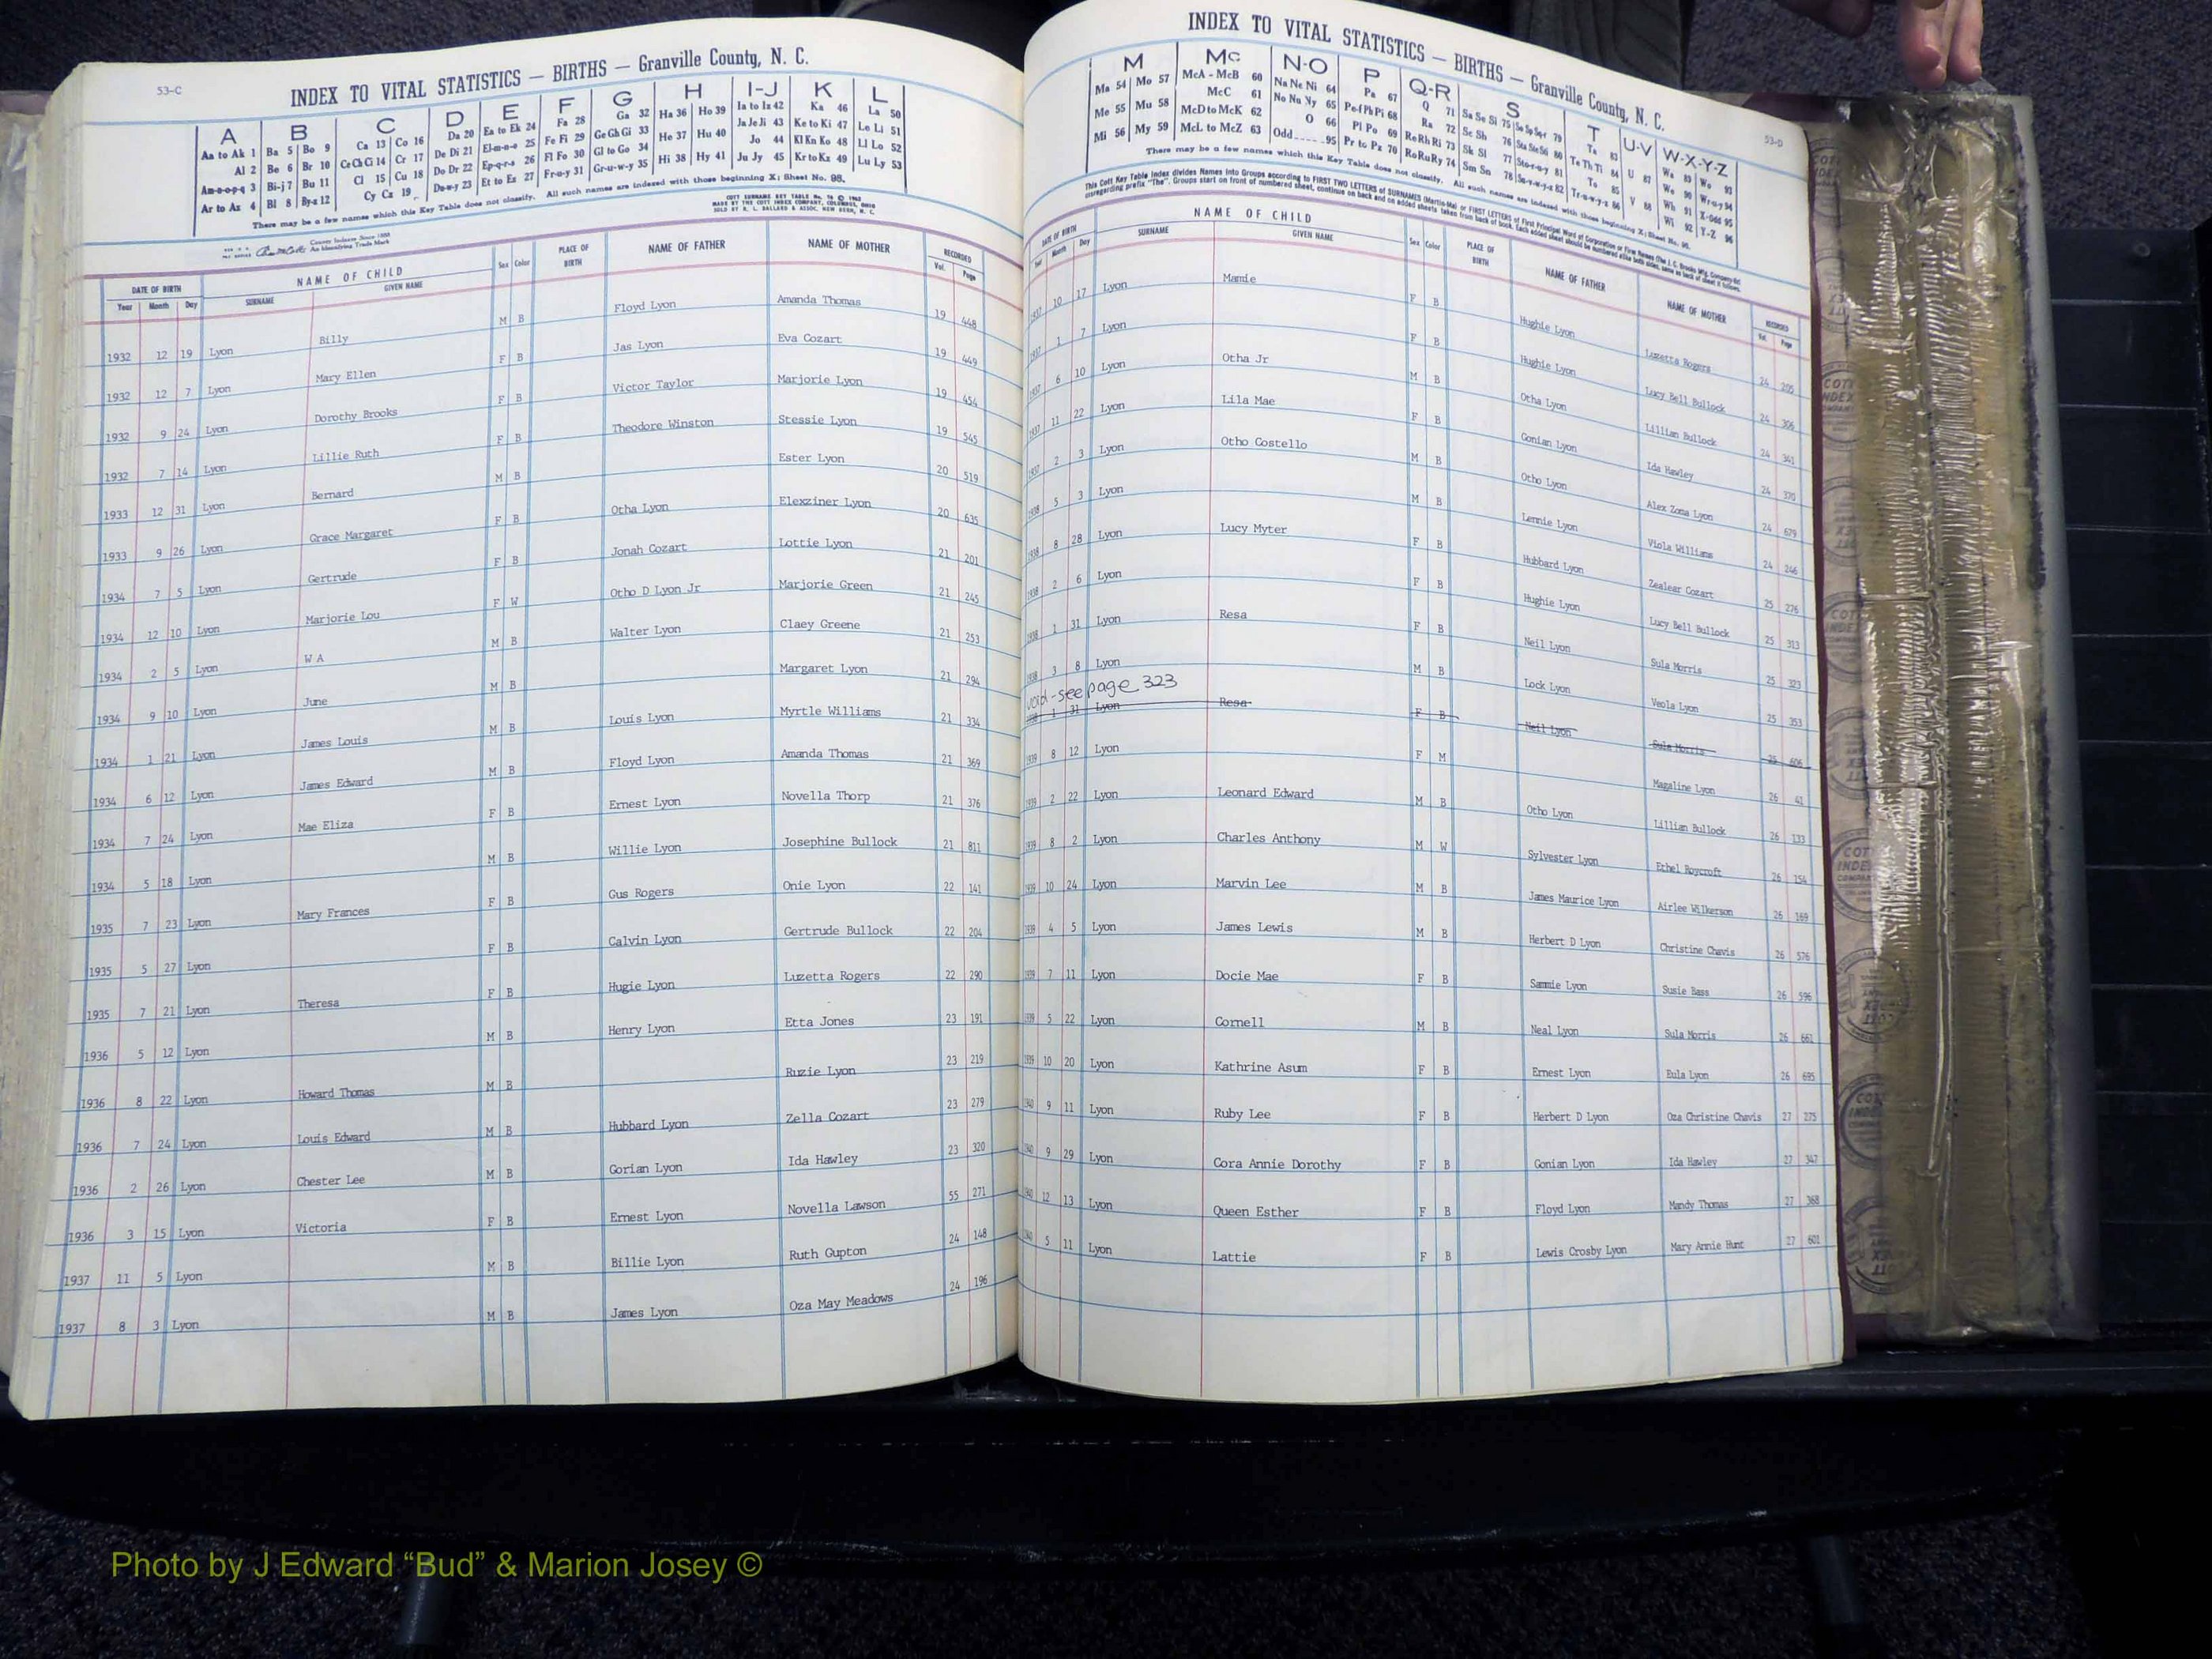 53-C
INDEX TO VITAL STATISTICS — BIRTHS — Granville County, N. C.
A B C D E F G H I-J K L
Aa to Ak 1 Ba 5 Bo 9 Ca 13 Co 16 Da 20 Ea to Ek 24 Fa 28 Ga 32 Ha 36 Ho 39 Ia to Iz 42 Ka 46 La 50
Al 2 Be 6 Br 10 Ce Ch Ci 14 Cr 17 De Di 21 El-m-n-o 25 Fe Fi 29 Ge Gh Gi 33 He 37 Hu 40 Ja Je Ji 43 Ke to Ki 47 Le Li 51
Am-n-o-p-q 3 Bi-j 7 Bu 11 Cl 15 Cu 18 Do Dr 22 Ep-q-r-s 26 Fl Fo 30 Gl to Go 34 Hi 38 Hy 41 Jo 44 Kl Kn Ko 48 Ll Lo 52
Ar to Az 4 Bl 8 By-z 12 Cy Cz 19 Du-w-y 23 Et to Ez 27 Fr-u-y 31 Gr-u-w-y 35 Ju Jy 45 Kr to Kz 49 Lu Ly 53
There may be a few names which this Key Table does not classify. All such names are indexed with those beginning X; Sheet No. 95.
COTT SURNAME KEY TABLE No. 76 © 1962
MADE BY THE COTT INDEX COMPANY, COLUMBUS, OHIO
SOLD BY R. L. BALLARD & ASSOC. NEW BERN, N. C.
County Indexes Since 1888
An Identifying Trade Mark
DATE OF BIRTH NAME OF CHILD Sex Color PLACE OF BIRTH NAME OF FATHER NAME OF MOTHER RECORDED
Year Month Day SURNAME GIVEN NAME Vol. Page
1932 12 19 Lyon Billy M B Floyd Lyon Amanda Thomas 19 448
1932 12 7 Lyon Mary Ellen F B Jas Lyon Eva Cozart 19 449
1932 9 24 Lyon Dorothy Brooks F B Victor Taylor Marjorie Lyon 19 454
1932 7 14 Lyon Lillie Ruth F B Theodore Winston Stessie Lyon 19 545
1933 12 31 Lyon Bernard M B Ester Lyon 20 519
1933 9 26 Lyon Grace Margaret F B Otha Lyon Elexziner Lyon 20 635
1934 7 5 Lyon Gertrude F B Jonah Cozart Lottie Lyon 21 201
1934 12 10 Lyon Marjorie Lou F W Otho D Lyon Jr Marjorie Green 21 245
1934 2 5 Lyon W A M B Walter Lyon Claey Greene 21 253
1934 9 10 Lyon June M B Margaret Lyon 21 294
1934 1 21 Lyon James Louis M B Louis Lyon Myrtle Williams 21 334
1934 6 12 Lyon James Edward M B Floyd Lyon Amanda Thomas 21 369
1934 7 24 Lyon Mae Eliza F B Ernest Lyon Novella Thorp 21 376
1934 5 18 Lyon M B Willie Lyon Josephine Bullock 21 811
1935 7 23 Lyon Mary Frances F B Gus Rogers Onie Lyon 22 141
1935 5 27 Lyon F B Calvin Lyon Gertrude Bullock 22 204
1935 7 21 Lyon Theresa F B Hugie Lyon Luzetta Rogers 22 290
1936 5 12 Lyon M B Henry Lyon Etta Jones 23 191
1936 8 22 Lyon Howard Thomas M B Ruzie Lyon 23 219
1936 7 24 Lyon Louis Edward M B Hubbard Lyon Zella Cozart 23 279
1936 2 26 Lyon Chester Lee M B Gorian Lyon Ida Hawley 23 320
1936 3 15 Lyon Victoria F B Ernest Lyon Novella Lawson 55 271
1937 11 5 Lyon M B Billie Lyon Ruth Gupton 24 148
1937 8 3 Lyon M B James Lyon Oza May Meadows 24 196
53-D
INDEX TO VITAL STATISTICS — BIRTHS — Granville County, N. C.
M Mc N-O P Q-R S T U-V W-X-Y-Z
Ma 54 Mo 57 McA - McB 60 Na Ne Ni 64 Pa 67 Q 71 Sa Se Si 75 So Sp Sq 79 Ta 83 U 87 Wa 89 Wo 93
Me 55 Mu 58 McC 61 No Nu Ny 65 Pe-f Ph Pi 68 Ra 72 Sc Sh 76 Sta Ste Sti 80 Te Th Ti 84 V 88 We 90 Wr-u-y 94
Mi 56 My 59 McD to McK 62 O 66 Pl Po 69 Re Rh Ri 73 Sk Sl 77 Sto-r-u-y 81 To 85 Wh 91 X-Odd 95
McL to McZ 63 Odd 95 Pr to Pz 70 Ro Ru Ry 74 Sm Sn 78 Su-v-w-y-z 82 Tr-u-w-y-z 86 Wi 92 Y-Z 96
There may be a few names which this Key Table does not classify. All such names are indexed with those beginning X; Sheet No. 95.
DATE OF BIRTH NAME OF CHILD Sex Color PLACE OF BIRTH NAME OF FATHER NAME OF MOTHER RECORDED
Year Month Day SURNAME GIVEN NAME Vol. Page
1937 10 17 Lyon Mamie F B Hughie Lyon Luzetta Rogers 24 205
1937 1 7 Lyon F B Hughie Lyon Lucy Bell Bullock 24 306
1937 6 10 Lyon Otha Jr M B Otha Lyon Lillian Bullock 24 341
1937 11 22 Lyon Lila Mae F B Gonian Lyon Ida Hawley 24 370
1937 2 3 Lyon Otho Costello M B Otho Lyon Alex Zona Lyon 24 679
1938 5 3 Lyon M B Lennie Lyon Viola Williams 24 246
1938 8 28 Lyon Lucy Myter F B Hubbard Lyon Zealear Cozart 25 276
1938 2 6 Lyon F B Hughie Lyon Lucy Bell Bullock 25 313
1938 1 31 Lyon Resa F B Neil Lyon Sula Morris 25 323
1938 3 8 Lyon M B Lock Lyon Veola Lyon 25 353
void - see page 323
1 31 Lyon Resa F B Neil Lyon Sula Morris 25 606
1939 8 12 Lyon F M Magaline Lyon 26 41
1939 2 22 Lyon Leonard Edward M B Otho Lyon Lillian Bullock 26 133
1939 8 2 Lyon Charles Anthony M W Sylvester Lyon Ethel Roycroft 26 154
1939 10 24 Lyon Marvin Lee M B James Maurice Lyon Airlee Wilkerson 26 169
1939 4 5 Lyon James Lewis M B Herbert D Lyon Christine Chavis 26 576
1939 7 11 Lyon Docie Mae F B Sammie Lyon Susie Bass 26 596
1939 5 22 Lyon Cornell M B Neal Lyon Sula Morris 26 661
1939 10 20 Lyon Kathrine Asum F B Ernest Lyon Eula Lyon 26 695
1940 9 11 Lyon Ruby Lee F B Herbert D Lyon Oza Christine Chavis 27 275
1940 9 29 Lyon Cora Annie Dorothy F B Gonian Lyon Ida Hawley 27 347
1940 12 13 Lyon Queen Esther F B Floyd Lyon Mandy Thomas 27 368
1940 5 11 Lyon Lattie F B Lewis Crosby Lyon Mary Annie Hunt 27 601
Photo by J Edward “Bud” & Marion Josey ©